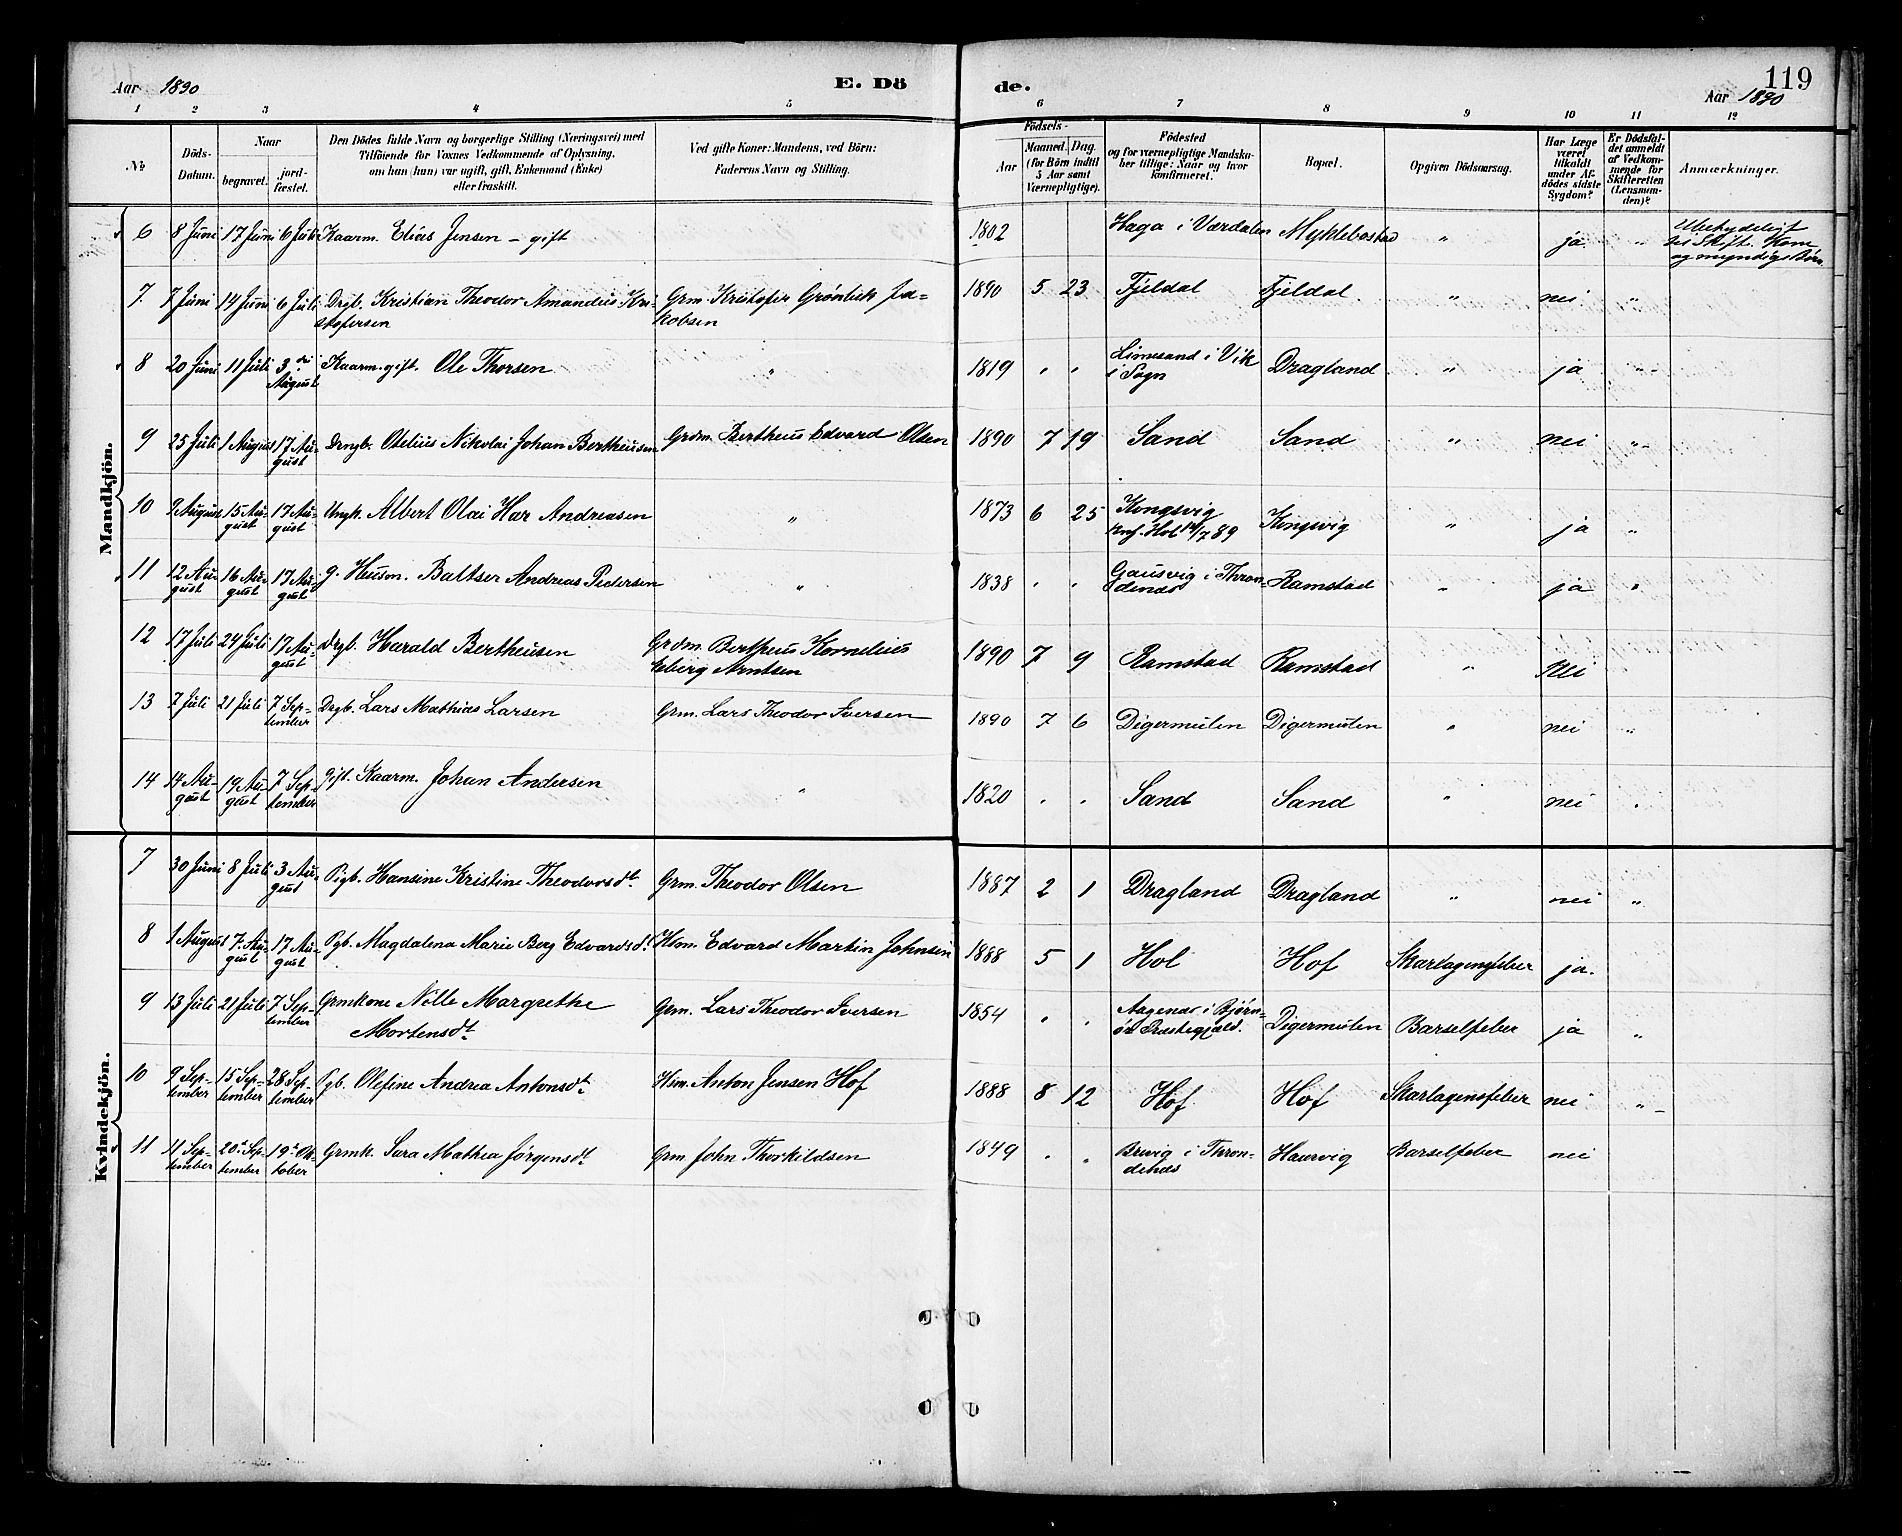 Aar 1890
E. Dö
de.
119
Aar 1890
1 2 3 4 5 6 7 8 9 10 11 12
№
Döds-Datum.
Naar
begravet.
jord-fæstet.
Den Dödes fulde Navn og borgerlige Stilling (Næringsvei) med
Tilföiende for Voxnes Vedkommende af Oplysning,
om han (hun) var ugift, gift, Enkemand (Enke)
eller fraskilt.
Ved gifte Koner: Mandens, ved Börn:
Faderens Navn og Stilling.
Födsels-
Aar
Maaned. Dag.
(for Börn indtil
5 Aar samt
Værnepligtige).
Födested
og for værnepligtige Mandska-
ber tillige: Naar og hvor
konfirmeret.
Bopæl.
Opgiven Dödsaarsag.
Har Læge
været
tilkaldt
under Af-
dödes sidste
Sygdom?
Er Dödsfal-
det anmeldt
af Vedkom-
mende for
Skifteretten
(Lensman-
den)?
Anmærkninger.
Mandkjön.
6 8 Juni 17 Juni 6 Juli Kaarm. Elias Jensen – gift 1802 Haga i Værdalen Myklebostad " ja " Ubetydeligt
til Skift. Kone
og myndige Børn
7. 7 Juni 14 Juni 6 Juli Drgb. Kristian Theodor Amandus Kri-
stofersen Grm. Kristofer Grønbek Ja-
kobsen 1890 5 23 Fjeldal Fjeldal. " nei "
8 20 Juni 11 Juli 3die
August Kaarm. gift. Ole Thorsen " 1819 " " Limesand i Vik
i Sogn Dragland " ja "
9 25 Juli 1 August 17 Au-
gust Drngb. Otelius Nikolai Johan Bertheusen Grdm. Bertheus Edvard Olsen 1890 7 19 Sand Sand " nei "
10 9 August 15 Au-
gust 17 Au-
gust Ungk. Albert Olai Har Andreasen " 1873 6 25 Kongsvig
konf. Hol /7 89 Kongsvig " ja "
11 12 Au-
gust 16 Au-
gust 17 Au-
gust g. Husm. Baltser Andreas Pedersen " 1838 " " Gausvig i Thron-
denæs Ramstad " ja "
12 17 Juli 24 Juli 17 Au-
gust Drgb. Harald Bertheusen Grdm. Bertheus Kornelius
Eberg Arntsen 1890 7 9 Ramstad Ramstad " nei
13 7 Juli 21 Juli 7 Sep-
tember Drgb. Lars Mathias Larsen Grm. Lars Theodor Iversen 1890 7 6 Digermulen Digermulen " nei "
14 14 Au-
gust 19 Au-
gust 7 Sep-
tember Gift. Kaarm. Johan Andersen " 1820 " " Sand Sand " nei "
Kvindekjön.
7 30 Juni 8 Juli 3 Au-
gust Pigb. Hansine Kristine Theodorsdt. Grm. Theodor Olsen 1887 2 1 Dragland Dragland " nei "
8 1 August 7. Au-
gust 17 Au-
gust Pgb. Magdalena Marie Berg Edvardsdt. Hsm. Edvard Martin Johnsen 1888 5 1 Hol Hof Skarlagensfeber ja.
9 13 Juli 21 Juli 7 Sep-
tember Grmkone Nille Margrethe
Mortensdt. Grm. Lars Theodor Iversen 1854 " " Aagenæs i Bjørn-
ös Præstegjæld. Digermulen Barselfeber ja "
10 9 Sep-
tember 15 Sep-
tember 28 Sep-
tember Pgb. Olefine Andrea Antonsdt. Hsm. Anton Jensen Hof 1888 8 12 Hof Hof Skarlagensfeber nei "
11 11 Sep-
tember 20de Sep-
tember 19de Ok-
tober Grmk. Sara Mathea Jørgensdt. Grm John Thorkildsen 1849 " " Brevig i Thron-
denæs Haurvig Barselfeber nei